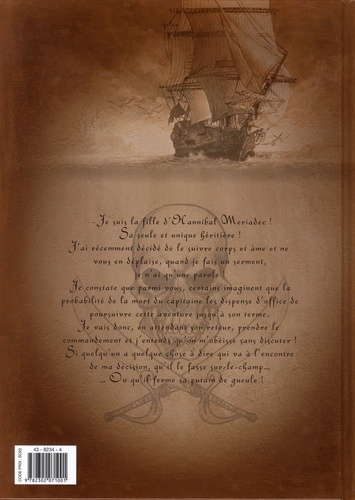 -Je suis la fille d'Hannibal Meriadec !
Sa seule et unique héritière !
J'ai récemment décidé de le suivre corps et âme et ne
vous en déplaise, quand je fais un serment,
je n'ai qu'une parole !
Je constate que parmi vous, certains imaginent que la
probabilité de la mort du capitaine les dispense d'office de
poursuivre cette aventure jusqu'à son terme.
Je vais donc, en attendant son retour, prendre le
commandement et j'entends qu'on m'obéisse sans discuter !
Si quelqu'un a quelque chose à dire qui va à l'encontre
de ma décision, qu'il le fasse sur-le-champ...
... Ou qu'il ferme sa putain de gueule !
43 - 8234 - 4
9 782302 071001